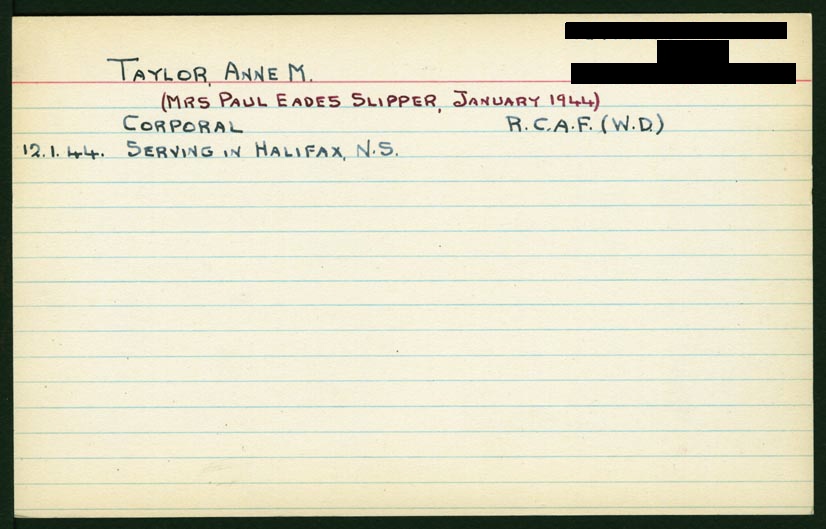 TAYLOR, ANNE M.
(MRS PAUL EADES SLIPPER, JANUARY 1944)
CORPORAL R.C.A.F. (W.D.)
12.1.44. SERVING IN HALIFAX, N.S.